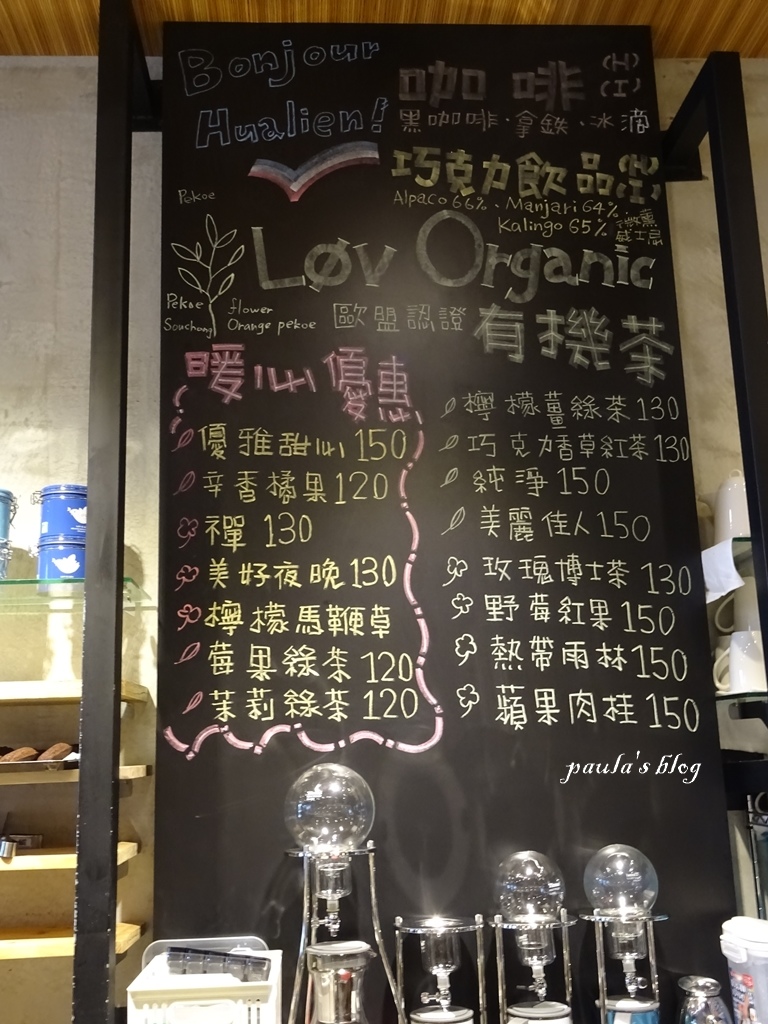 Bonjour
Hualien!
咖啡(H)(I)
黑咖啡·拿鐵·冰滴
巧克力飲品(H)(I)
Alpaco 66%、Manjari 64%、
Kalingo 65%
威士忌
Pekoe
Løv Organic
Pekoe
Souchong
flower
Orange pekoe
歐盟認證
有機茶
暖心優惠
優雅甜心150
辛香橘果120
禪 130
美好夜晚130
檸檬馬鞭草
莓果綠茶120
茉莉綠茶120
檸檬薑綠茶130
巧克力香草紅茶130
純淨150
美麗佳人150
玫瑰博士茶130
野莓紅果150
熱帶雨林150
蘋果肉桂150
paula's blog